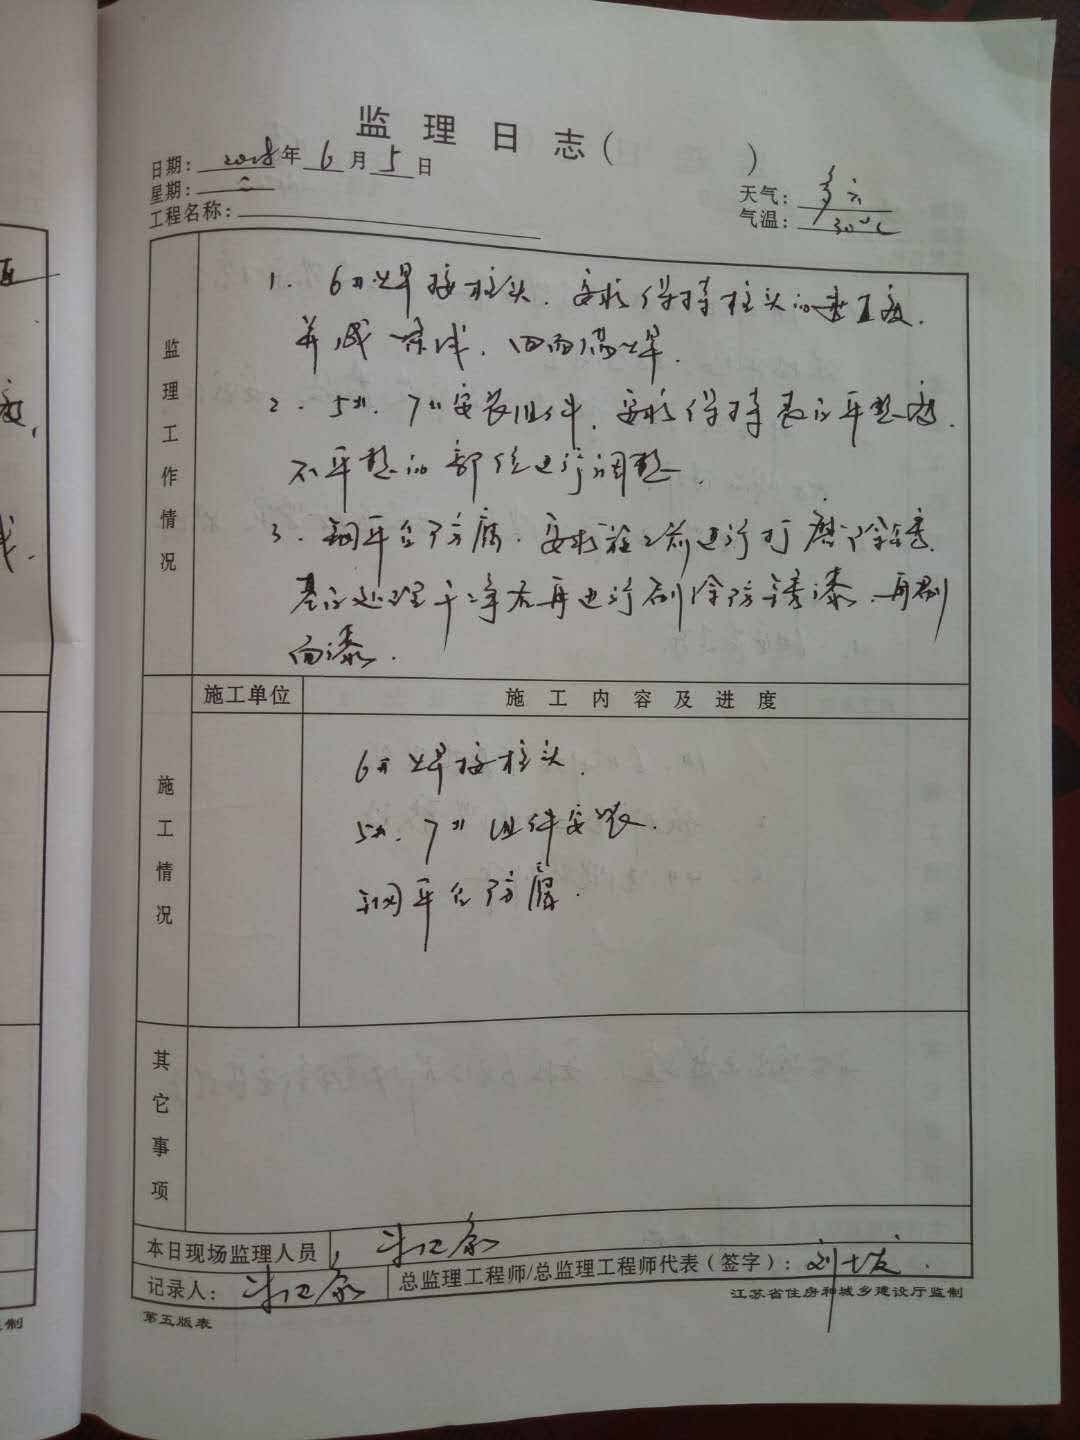 监理日志（ ）
日期：2018年6月5日
星期：二
工程名称：
天气：多云
气温：30℃
监理工作情况
1. 6#焊接柱头，要求保持柱头的垂直度，
并成一条线，四面满焊．
2. 5#、7#安装组件，要求保持表面平整度，
不平整的部位进行调整．
3. 钢平台防腐，要求施工前进行打磨除锈，
基面处理干净后再进行刷涂防锈漆，再刷
面漆．
施工单位
施工内容及进度
施工情况
6#焊接柱头．
5#、7#组件安装．
钢平台防腐．
其它事项
本日现场监理人员
记录人：
总监理工程师/总监理工程师代表（签字）：刘
江苏省住房和城乡建设厅监制
第五版表
制